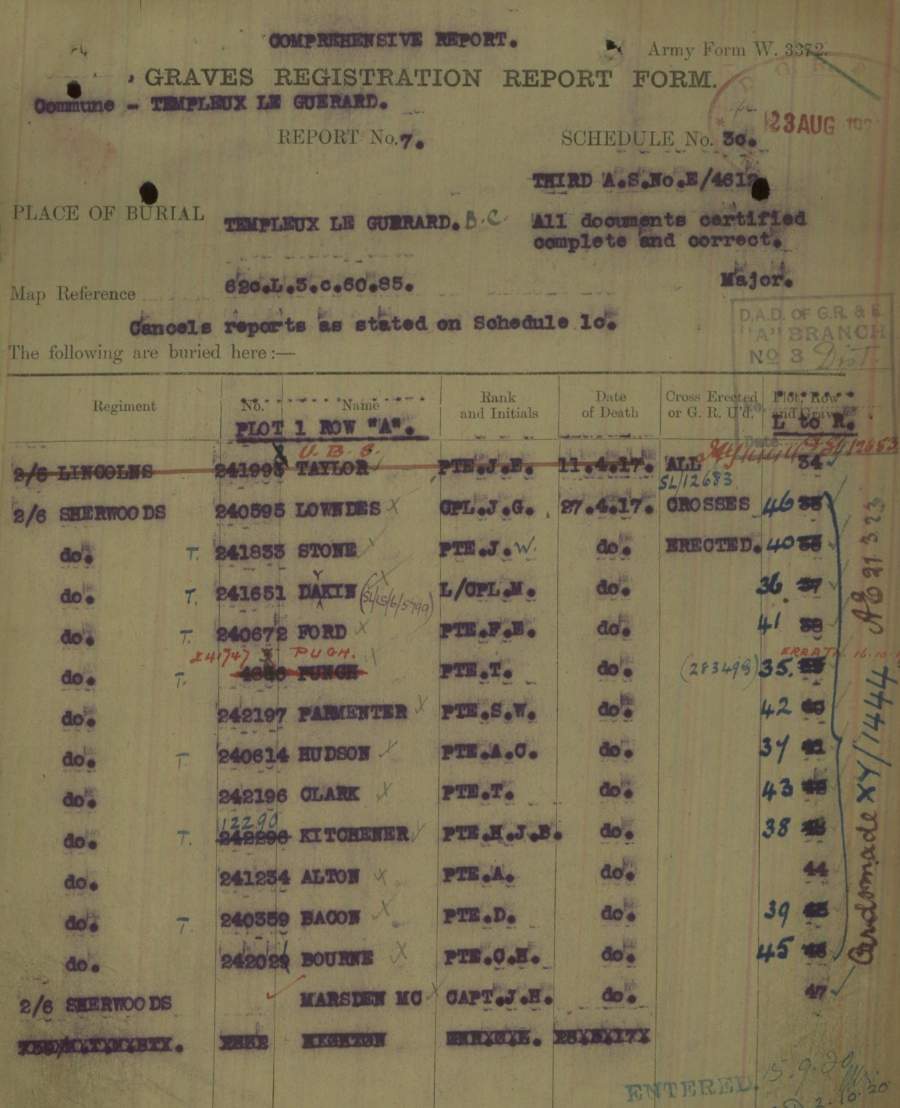 COMPREHENSIVE REPORT.
Army Form W. 3372.
GRAVES REGISTRATION REPORT FORM.
Commune - TEMPLEUX LE GUERARD.
23 AUG
REPORT No. 7. SCHEDULE No. 30.
THIRD A.S.No.E/4612
PLACE OF BURIAL TEMPLEUX LE GUERARD. B.C. All documents certified
complete and correct.
Map Reference 62c.L.3.c.60.85. Major.
Cancels reports as stated on Schedule 1c.
D.A.D. OF G.R. & E.
"A" BRANCH
No 3 Dist.
The following are buried here:—
Regiment No. Name Rank and Initials Date of Death Cross Erected or G. R. U'd. Plot, Row and Grave
PLOT 1 ROW "A". L to R.
U.B.S.
2/6 LINCOLNS 241993 TAYLOR PTE.J.E. 11.4.17. ALL 34
SL/12683
2/6 SHERWOODS 240595 LOWNDES X CPL.J.G. 27.4.17. CROSSES 46
do. T. 241833 STONE PTE.J.W. do. ERECTED. 40
do. T. 241651 DAKIN Y (SL/S/6/5799) L/CPL.M. do. 36 37
do. T. 240672 FORD X PTE.F.E. do. 41 38
241747 PUGH. ERRATA 16.10.
do. T. PUNCH PTE.T. do. (283498) 35.
do. 242197 PARMENTER X PTE.S.W. do. 42 40
do. T 240614 HUDSON X PTE.A.C. do. 37 41
do. 242196 CLARK X PTE.T. do. 43
12290
do. T. 242296 KITCHENER PTE.H.J.B. do. 38
do. 241234 ALTON X PTE.A. do. 44
do. T 240359 BACON X PTE.D. do. 39
do. 242029 BOURNE X PTE.C.H. do. 45
2/6 SHERWOODS MARSDEN MC X CAPT.J.H. do. 47
Cardsmade XY/1444 AE 21323
ENTERED. 15.9.20
2.10.20